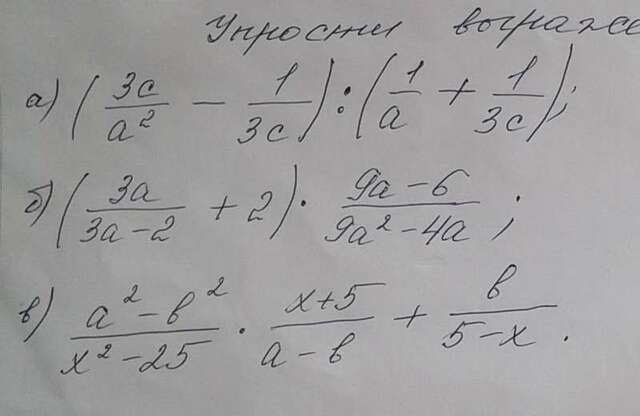 Упрости выраже
а) (3c/a² − 1/3c) : (1/a + 1/3c);
б) (3a/3a−2 + 2) · 9a−6/9a²−4a ;
в) a²−в²/x²−25 · x+5/a−в + в/5−x .